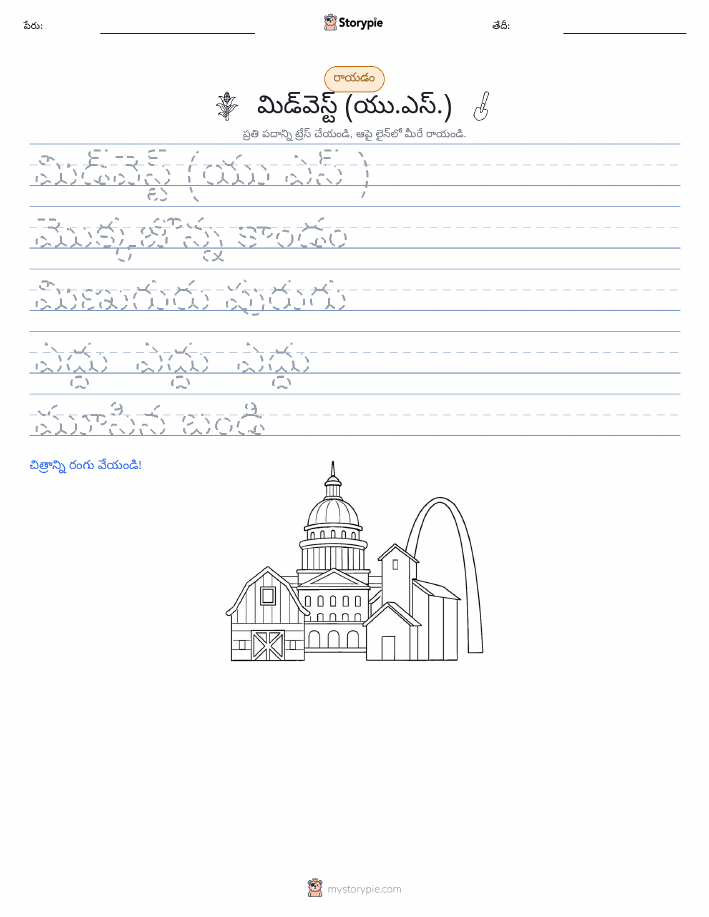 పేరు:
Storypie
తేదీ:
రాయడం
మిడ్‌వెస్ట్ (యు.ఎస్.)
ప్రతి పదాన్ని ట్రేస్ చేయండి, ఆపై లైన్‌లో మీరే రాయండి.
మిడ్‌వెస్ట్ (యు ఎస్ )
మొక్కజొన్న కాండం
మిణుగురు పురుగు
ఎద్దు ఎద్దు ఎద్దు
మూసిన బండి
చిత్రాన్ని రంగు వేయండి!
mystorypie.com